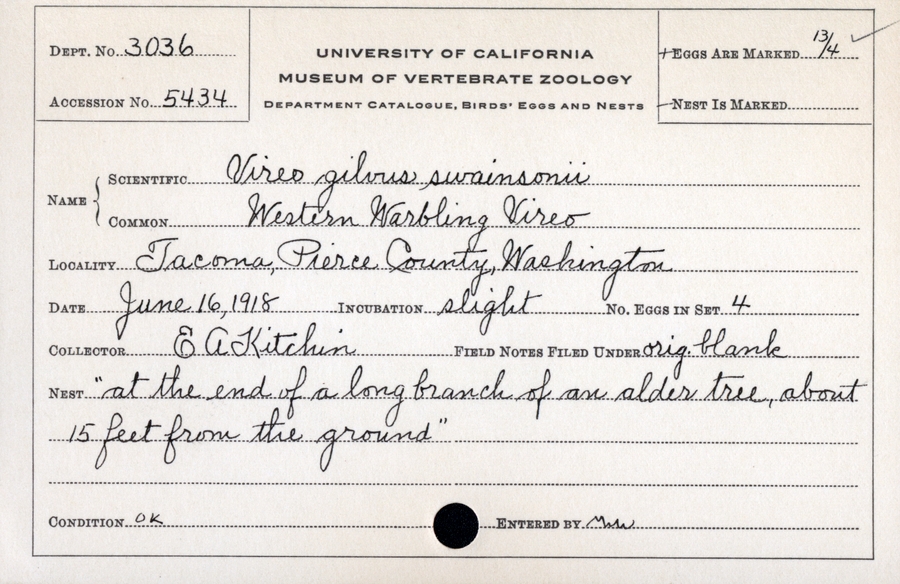 DEPT. NO. 3036
ACCESSION NO. 5434
UNIVERSITY OF CALIFORNIA
MUSEUM OF VERTEBRATE ZOOLOGY
DEPARTMENT CATALOGUE, BIRDS' EGGS AND NESTS
EGGS ARE MARKED 13/4
NEST IS MARKED
NAME
SCIENTIFIC Vireo gilvus swainsonii
COMMON Western Warbling Vireo
LOCALITY Tacoma, Pierce County, Washington
DATE June 16, 1918 INCUBATION slight NO. EGGS IN SET 4
COLLECTOR E A Kitchin FIELD NOTES FILED UNDER orig. blank
NEST "at the end of a long branch of an alder tree, about
15 feet from the ground"
CONDITION OK ENTERED BY